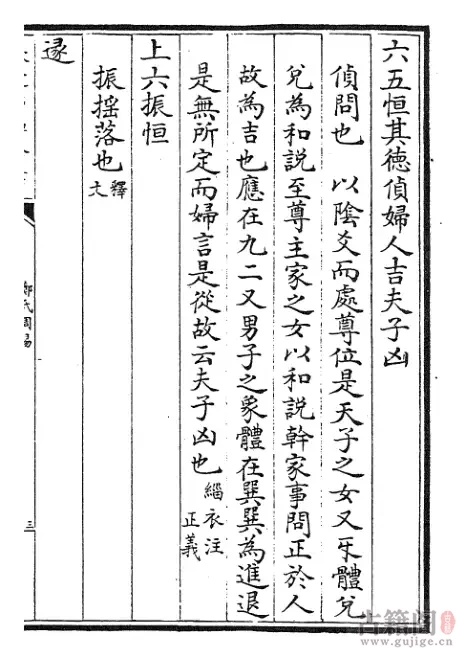 六五恒其德偵婦人吉夫子凶
偵問也　以陰爻而處尊位是天子之女又互體兌
兌為和説至尊主家之女以和説幹家事問正於人
故為吉也應在九二又男子之象體在巽巽為進退
是無所定而婦言是從故云夫子凶也緇衣注正義
上六振恒
振揺落也釋文
遂
鄭氏周易
三
古籍阁
www.gujige.cn